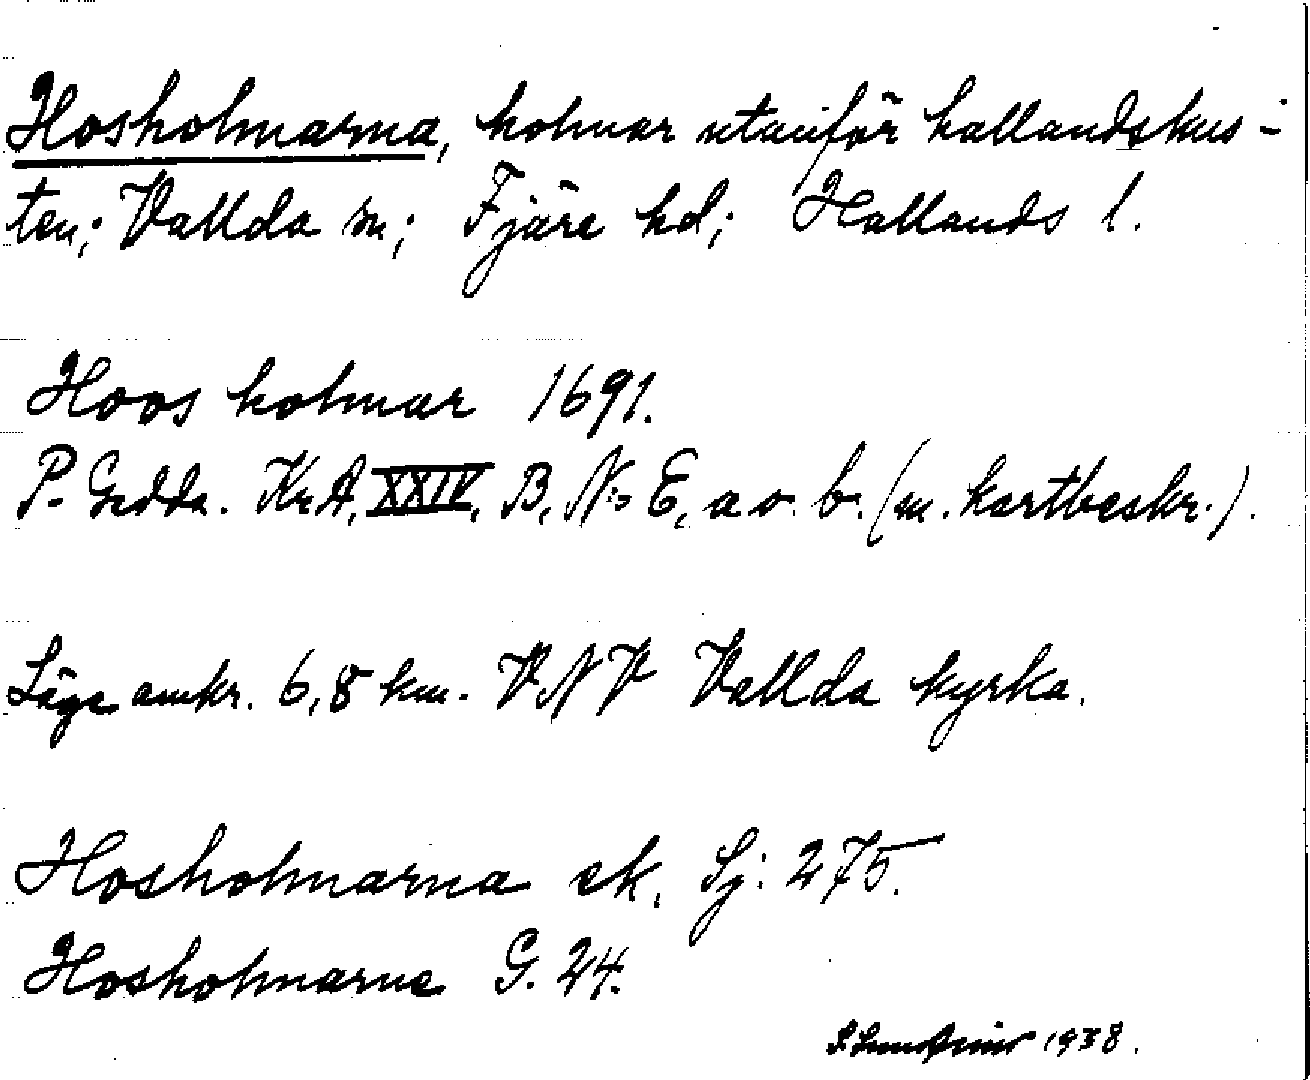 Hosholmarna, holmar utanför hallandskus-
ten; Vallda sn; Fjäre hd; Hallands l.
Hoos holmar 1691.
P. Gedda. Kr.A, XXIV, B, No E, a o. b. (m. kartbeskr.).
Läge omkr. 6,8 km. VNV Vallda kyrka.
Hosholmarna ek. Sj: 275.
Hosholmarna G. 24.
1938.